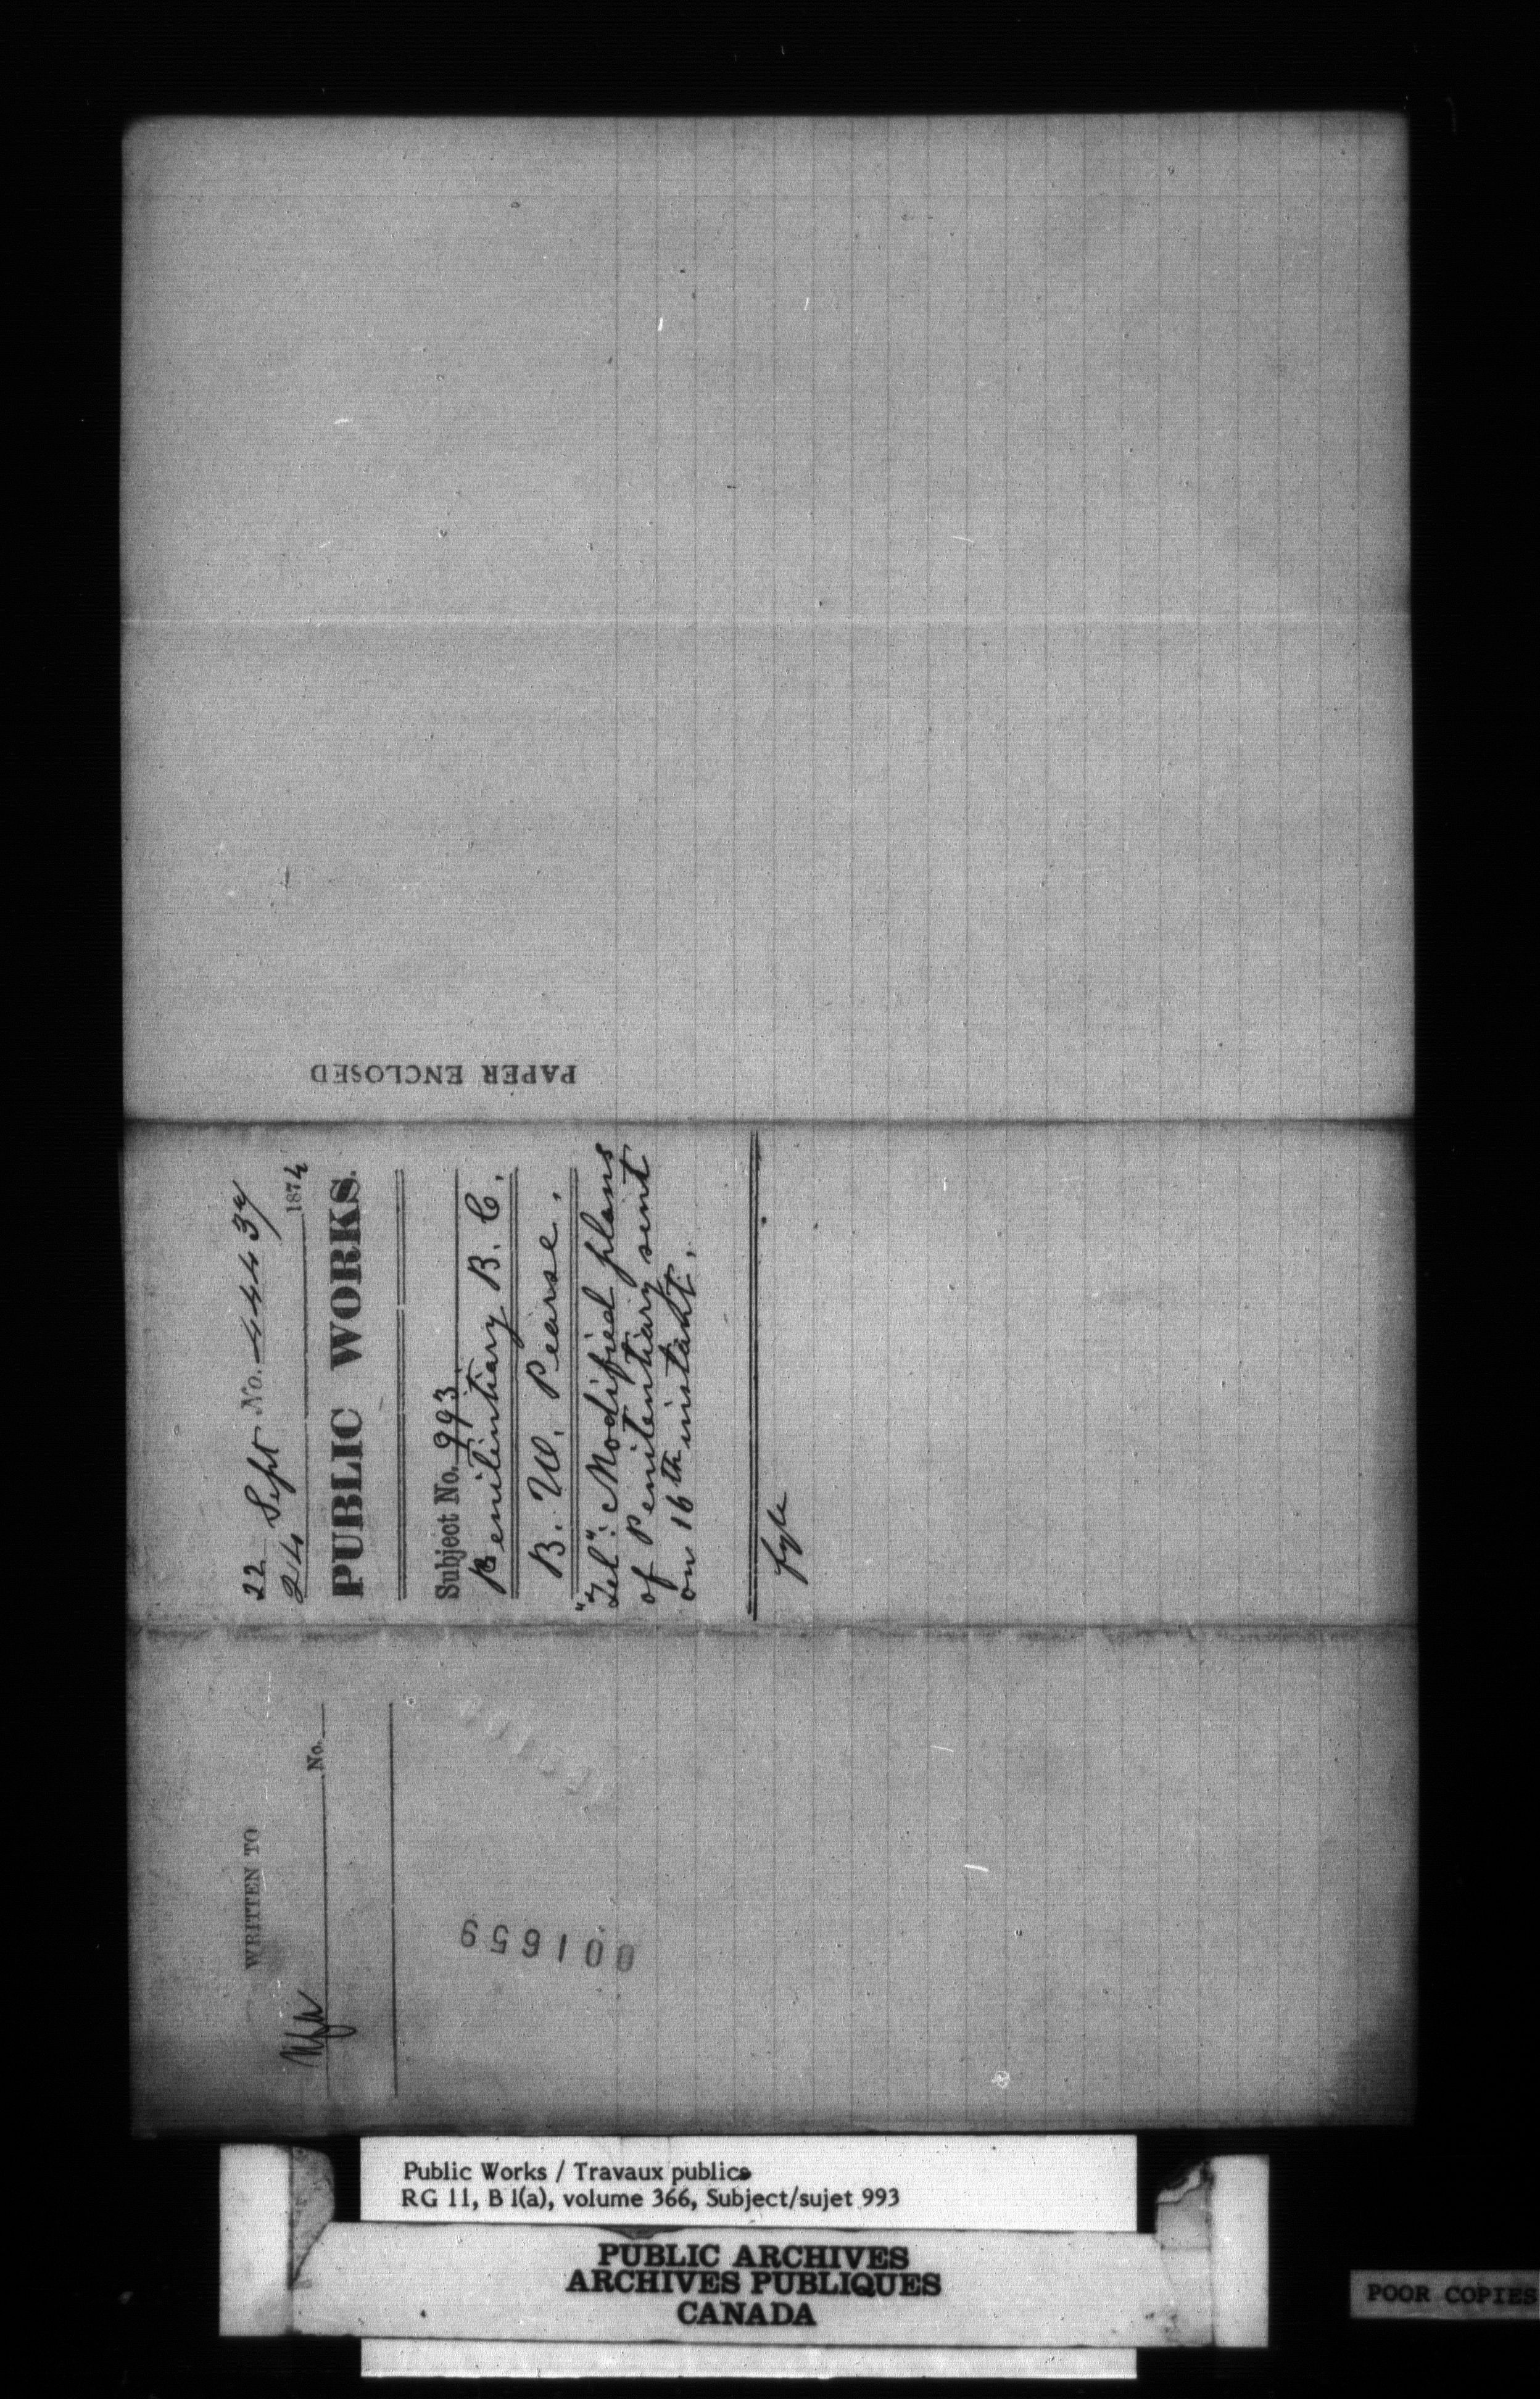 PAPER ENCLOSED
22 Sept No. 44437
24 1874
PUBLIC WORKS.
Subject No. 993.
Penitentiary B. C.
B. W. Pearse.
"Tel": Modified plans
of Penitentiary sent
on 16th instant.
fyle
WRITTEN TO
No.
001659
Public Works / Travaux publics
RG 11, B 1(a), volume 366, Subject/sujet 993
PUBLIC ARCHIVES
ARCHIVES PUBLIQUES
CANADA
POOR COPIES